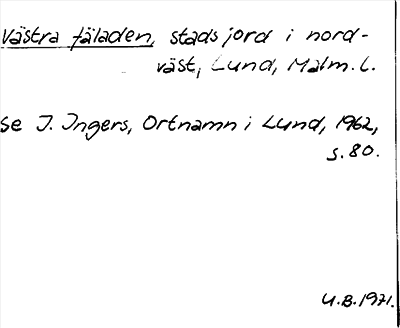 Västra fäladen, stadsjord i nord-
väst, Lund, Malm. l.
se J. Ingers, Ortnamn i Lund, 1962,
s. 80.
U.B. 1971.